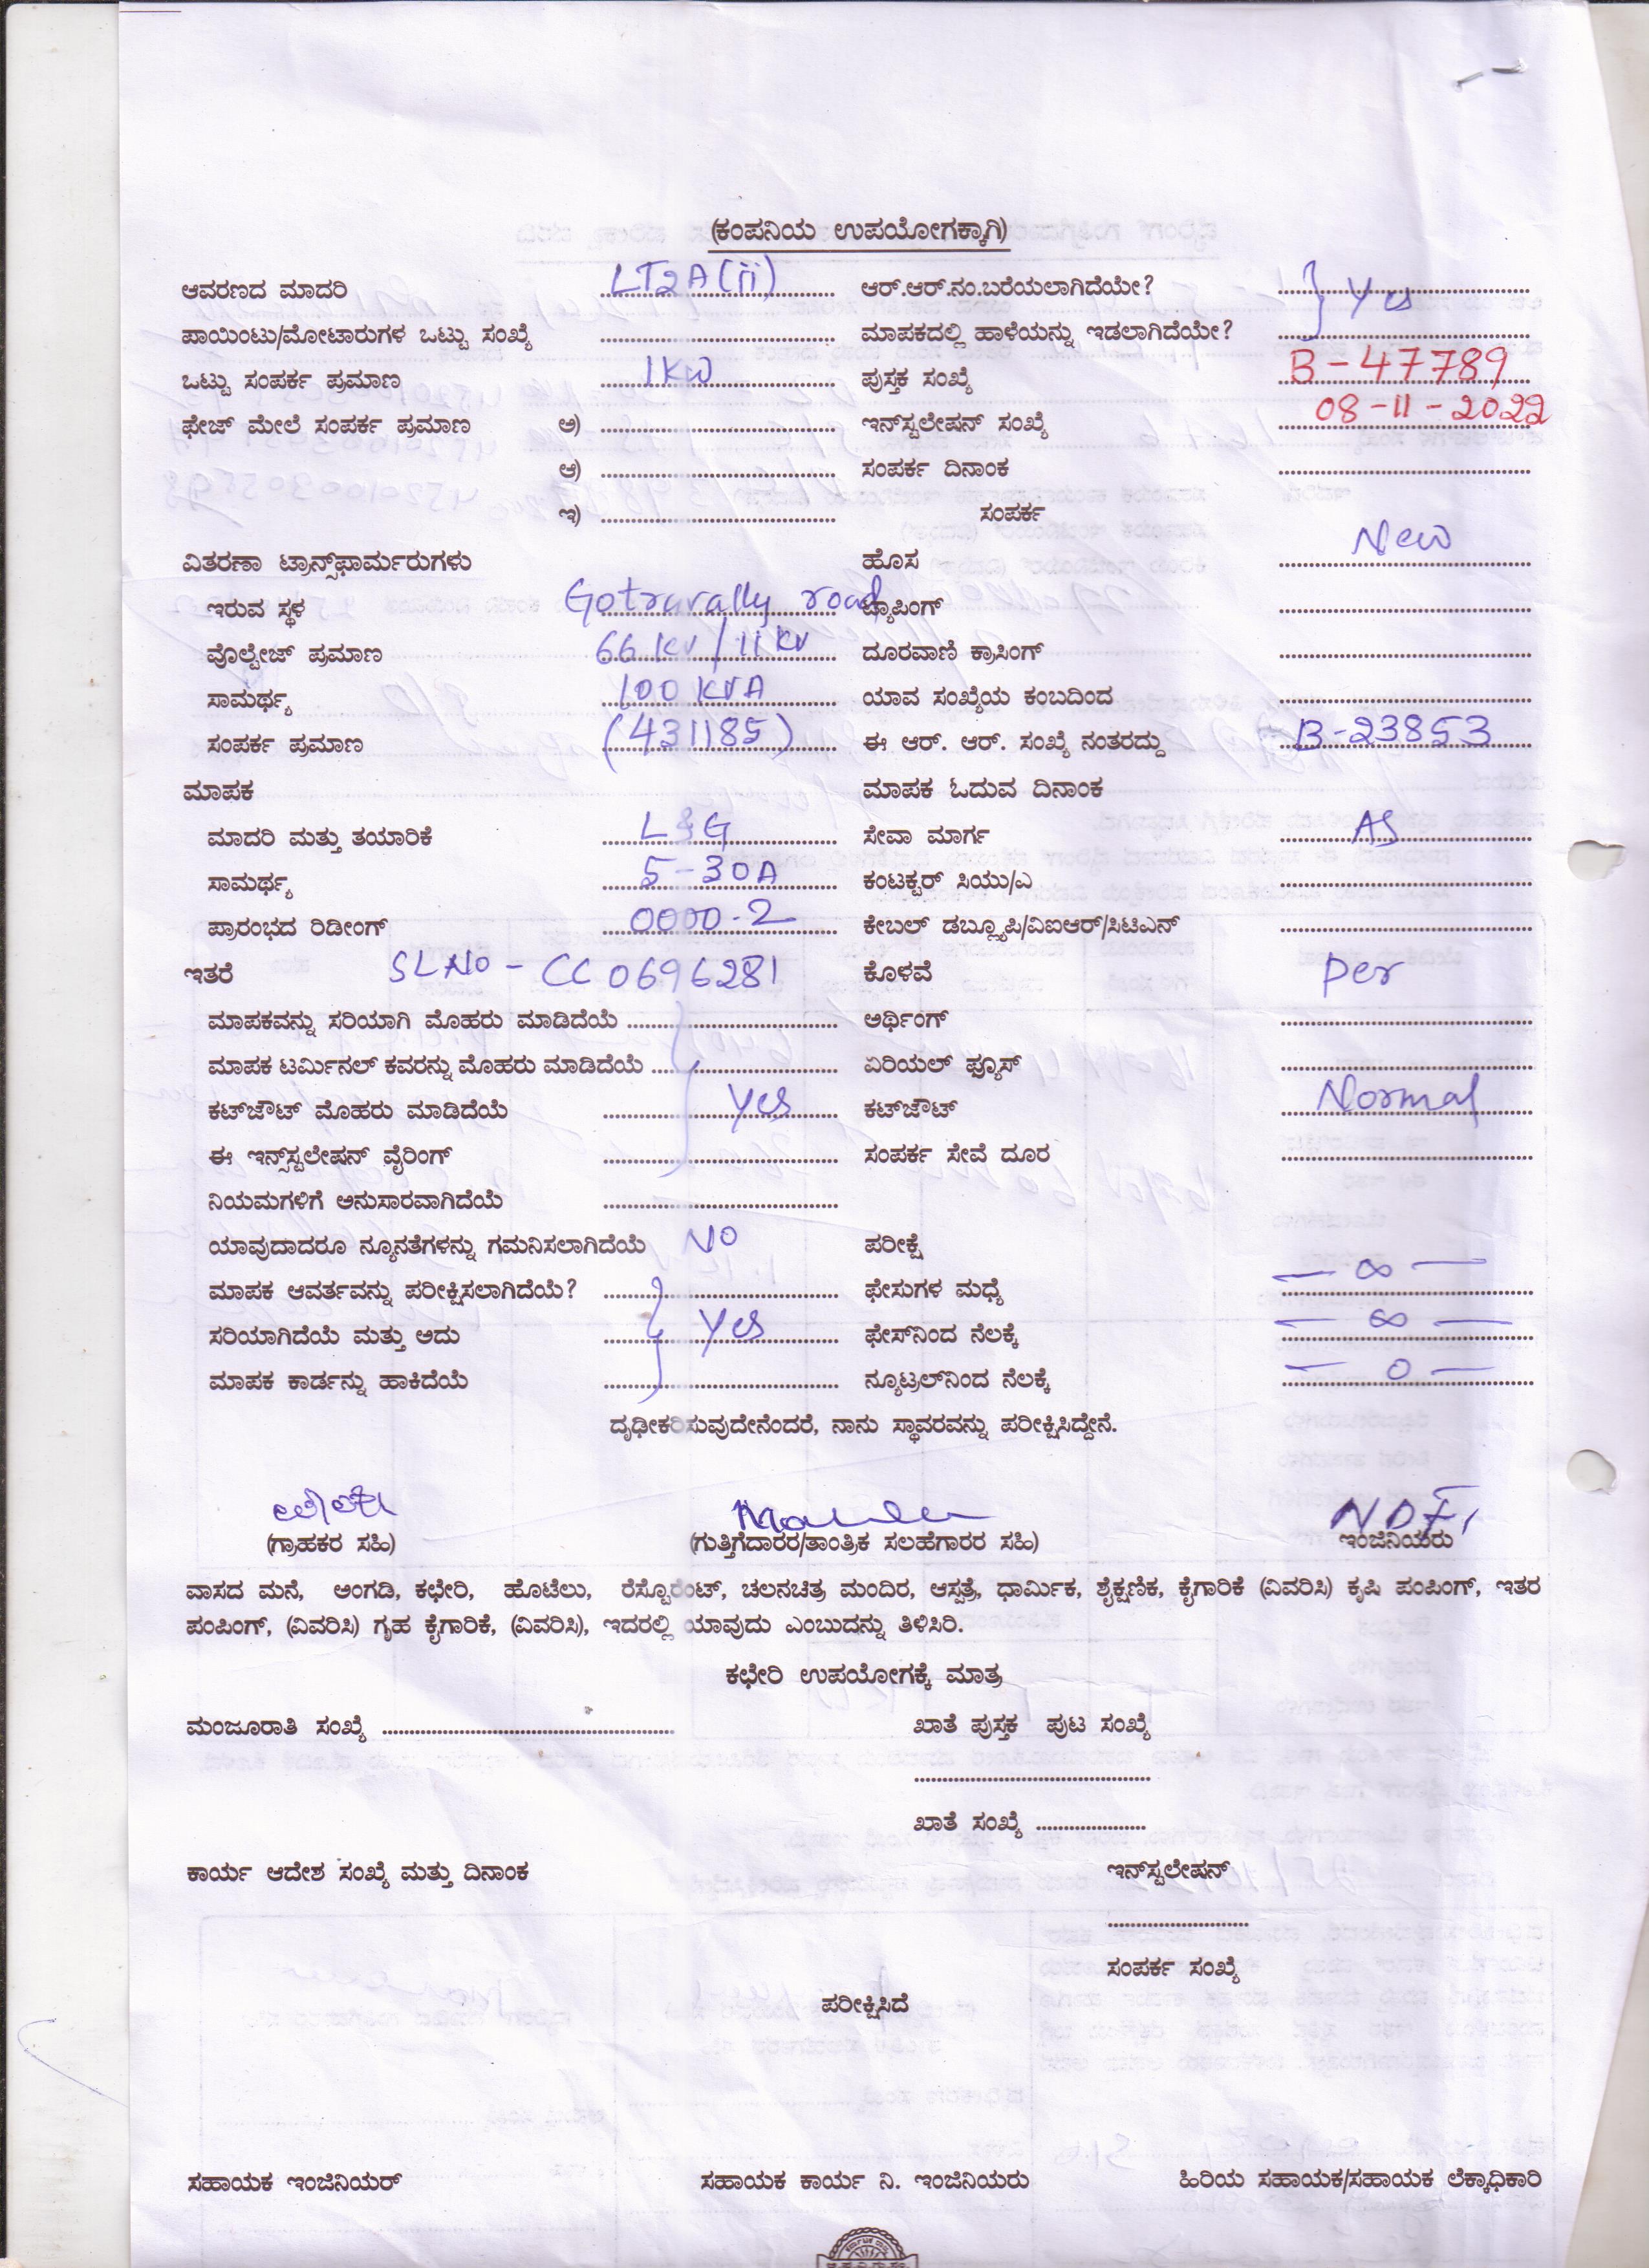 (ಕಂಪನಿಯ ಉಪಯೋಗಕ್ಕಾಗಿ)
ಆವರಣದ ಮಾದರಿ LT2A(ii) ಆರ್.ಆರ್.ನಂ.ಬರೆಯಲಾಗಿದೆಯೇ? } Yes
ಪಾಯಿಂಟು/ಮೋಟಾರುಗಳ ಒಟ್ಟು ಸಂಖ್ಯೆ ಮಾಪಕದಲ್ಲಿ ಹಾಳೆಯನ್ನು ಇಡಲಾಗಿದೆಯೇ?
ಒಟ್ಟು ಸಂಪರ್ಕ ಪ್ರಮಾಣ 1KW ಪುಸ್ತಕ ಸಂಖ್ಯೆ B-47789
ಫೇಜ್ ಮೇಲೆ ಸಂಪರ್ಕ ಪ್ರಮಾಣ ಅ) ಇನ್‌ಸ್ಟಲೇಷನ್ ಸಂಖ್ಯೆ 08-11-2022
ಆ) ಸಂಪರ್ಕ ದಿನಾಂಕ
ಇ) ಸಂಪರ್ಕ
ವಿತರಣಾ ಟ್ರಾನ್ಸ್‌ಫಾರ್ಮರುಗಳು ಹೊಸ New
ಇರುವ ಸ್ಥಳ road ಟ್ಯಾಪಿಂಗ್
ವೊಲ್ಟೇಜ್ ಪ್ರಮಾಣ 66 KV / 11 KV ದೂರವಾಣಿ ಕ್ರಾಸಿಂಗ್
ಸಾಮರ್ಥ್ಯ 100 KVA ಯಾವ ಸಂಖ್ಯೆಯ ಕಂಬದಿಂದ
ಸಂಪರ್ಕ ಪ್ರಮಾಣ (431185) ಈ ಆರ್. ಆರ್. ಸಂಖ್ಯೆ ನಂತರದ್ದು B-23853
ಮಾಪಕ ಮಾಪಕ ಓದುವ ದಿನಾಂಕ
ಮಾದರಿ ಮತ್ತು ತಯಾರಿಕೆ L&G ಸೇವಾ ಮಾರ್ಗ AS
ಸಾಮರ್ಥ್ಯ 5-30A ಕಂಟಕ್ಟರ್ ಸಿಯು/ಎ
ಪ್ರಾರಂಭದ ರಿಡೀಂಗ್ 0000-2 ಕೇಬಲ್ ಡಬ್ಲ್ಯೂಪಿ/ವಿಐಆರ್/ಸಿಟಿಎನ್
ಇತರೆ SLNO - CC0696281 ಕೊಳವೆ Per
ಮಾಪಕವನ್ನು ಸರಿಯಾಗಿ ಮೊಹರು ಮಾಡಿದೆಯೆ ಅರ್ಥಿಂಗ್
ಮಾಪಕ ಟರ್ಮಿನಲ್ ಕವರನ್ನು ಮೊಹರು ಮಾಡಿದೆಯೆ ಏರಿಯಲ್ ಫ್ಯೂಸ್
ಕಟ್‌ಜೌಟ್ ಮೊಹರು ಮಾಡಿದೆಯೆ } Yes ಕಟ್‌ಜೌಟ್ Normal
ಈ ಇನ್ಸ್‌ಸ್ಟಲೇಷನ್ ವೈರಿಂಗ್ ಸಂಪರ್ಕ ಸೇವೆ ದೂರ
ನಿಯಮಗಳಿಗೆ ಅನುಸಾರವಾಗಿದೆಯೆ
ಯಾವುದಾದರೂ ನ್ಯೂನತೆಗಳನ್ನು ಗಮನಿಸಲಾಗಿದೆಯೆ NO ಪರೀಕ್ಷೆ
ಮಾಪಕ ಆವರ್ತವನ್ನು ಪರೀಕ್ಷಿಸಲಾಗಿದೆಯೆ? ಫೇಸುಗಳ ಮಧ್ಯೆ — ∞ —
ಸರಿಯಾಗಿದೆಯೆ ಮತ್ತು ಅದು } Yes ಫೇಸ್‌ನಿಂದ ನೆಲಕ್ಕೆ — ∞ —
ಮಾಪಕ ಕಾರ್ಡನ್ನು ಹಾಕಿದೆಯೆ ನ್ಯೂಟ್ರಲ್‌ನಿಂದ ನೆಲಕ್ಕೆ — 0 —
ದೃಢೀಕರಿಸುವುದೇನೆಂದರೆ, ನಾನು ಸ್ಥಾವರವನ್ನು ಪರೀಕ್ಷಿಸಿದ್ದೇನೆ.
(ಗ್ರಾಹಕರ ಸಹಿ) (ಗುತ್ತಿಗೆದಾರರ/ತಾಂತ್ರಿಕ ಸಲಹೆಗಾರರ ಸಹಿ) ಇಂಜಿನಿಯರು
ವಾಸದ ಮನೆ, ಅಂಗಡಿ, ಕಛೇರಿ, ಹೊಟೆಲು, ರೆಸ್ಟೊರೆಂಟ್, ಚಲನಚಿತ್ರ ಮಂದಿರ, ಆಸ್ಪತ್ರೆ, ಧಾರ್ಮಿಕ, ಶೈಕ್ಷಣಿಕ, ಕೈಗಾರಿಕೆ (ವಿವರಿಸಿ) ಕೃಷಿ ಪಂಪಿಂಗ್, ಇತರ
ಪಂಪಿಂಗ್, (ವಿವರಿಸಿ) ಗೃಹ ಕೈಗಾರಿಕೆ, (ವಿವರಿಸಿ), ಇದರಲ್ಲಿ ಯಾವುದು ಎಂಬುದನ್ನು ತಿಳಿಸಿರಿ.
ಕಛೇರಿ ಉಪಯೋಗಕ್ಕೆ ಮಾತ್ರ
ಮಂಜೂರಾತಿ ಸಂಖ್ಯೆ ಖಾತೆ ಪುಸ್ತಕ ಪುಟ ಸಂಖ್ಯೆ
ಖಾತೆ ಸಂಖ್ಯೆ
ಕಾರ್ಯ ಆದೇಶ ಸಂಖ್ಯೆ ಮತ್ತು ದಿನಾಂಕ ಇನ್‌ಸ್ಟಲೇಷನ್
ಸಂಪರ್ಕ ಸಂಖ್ಯೆ
ಪರೀಕ್ಷಿಸಿದೆ
ಸಹಾಯಕ ಇಂಜಿನಿಯರ್ ಸಹಾಯಕ ಕಾರ್ಯ ನಿ. ಇಂಜಿನಿಯರು ಹಿರಿಯ ಸಹಾಯಕ/ಸಹಾಯಕ ಲೆಕ್ಕಾಧಿಕಾರಿ